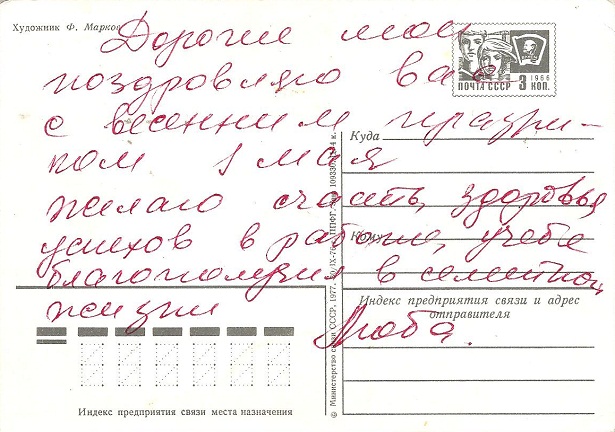 Художник Ф. Марков
Дорогие мои
поздравляю вас
с весенним праздни-
ком 1 мая
желаю счастья, здоровья
успехов в работе, учебе
благополучия в семейной
жизни
Люба.
1966
ПОЧТА СССР 3 КОП.
Куда
Кому
Индекс предприятия связи и адрес
отправителя
Индекс предприятия связи места назначения
© Министерство связи СССР, 1977.